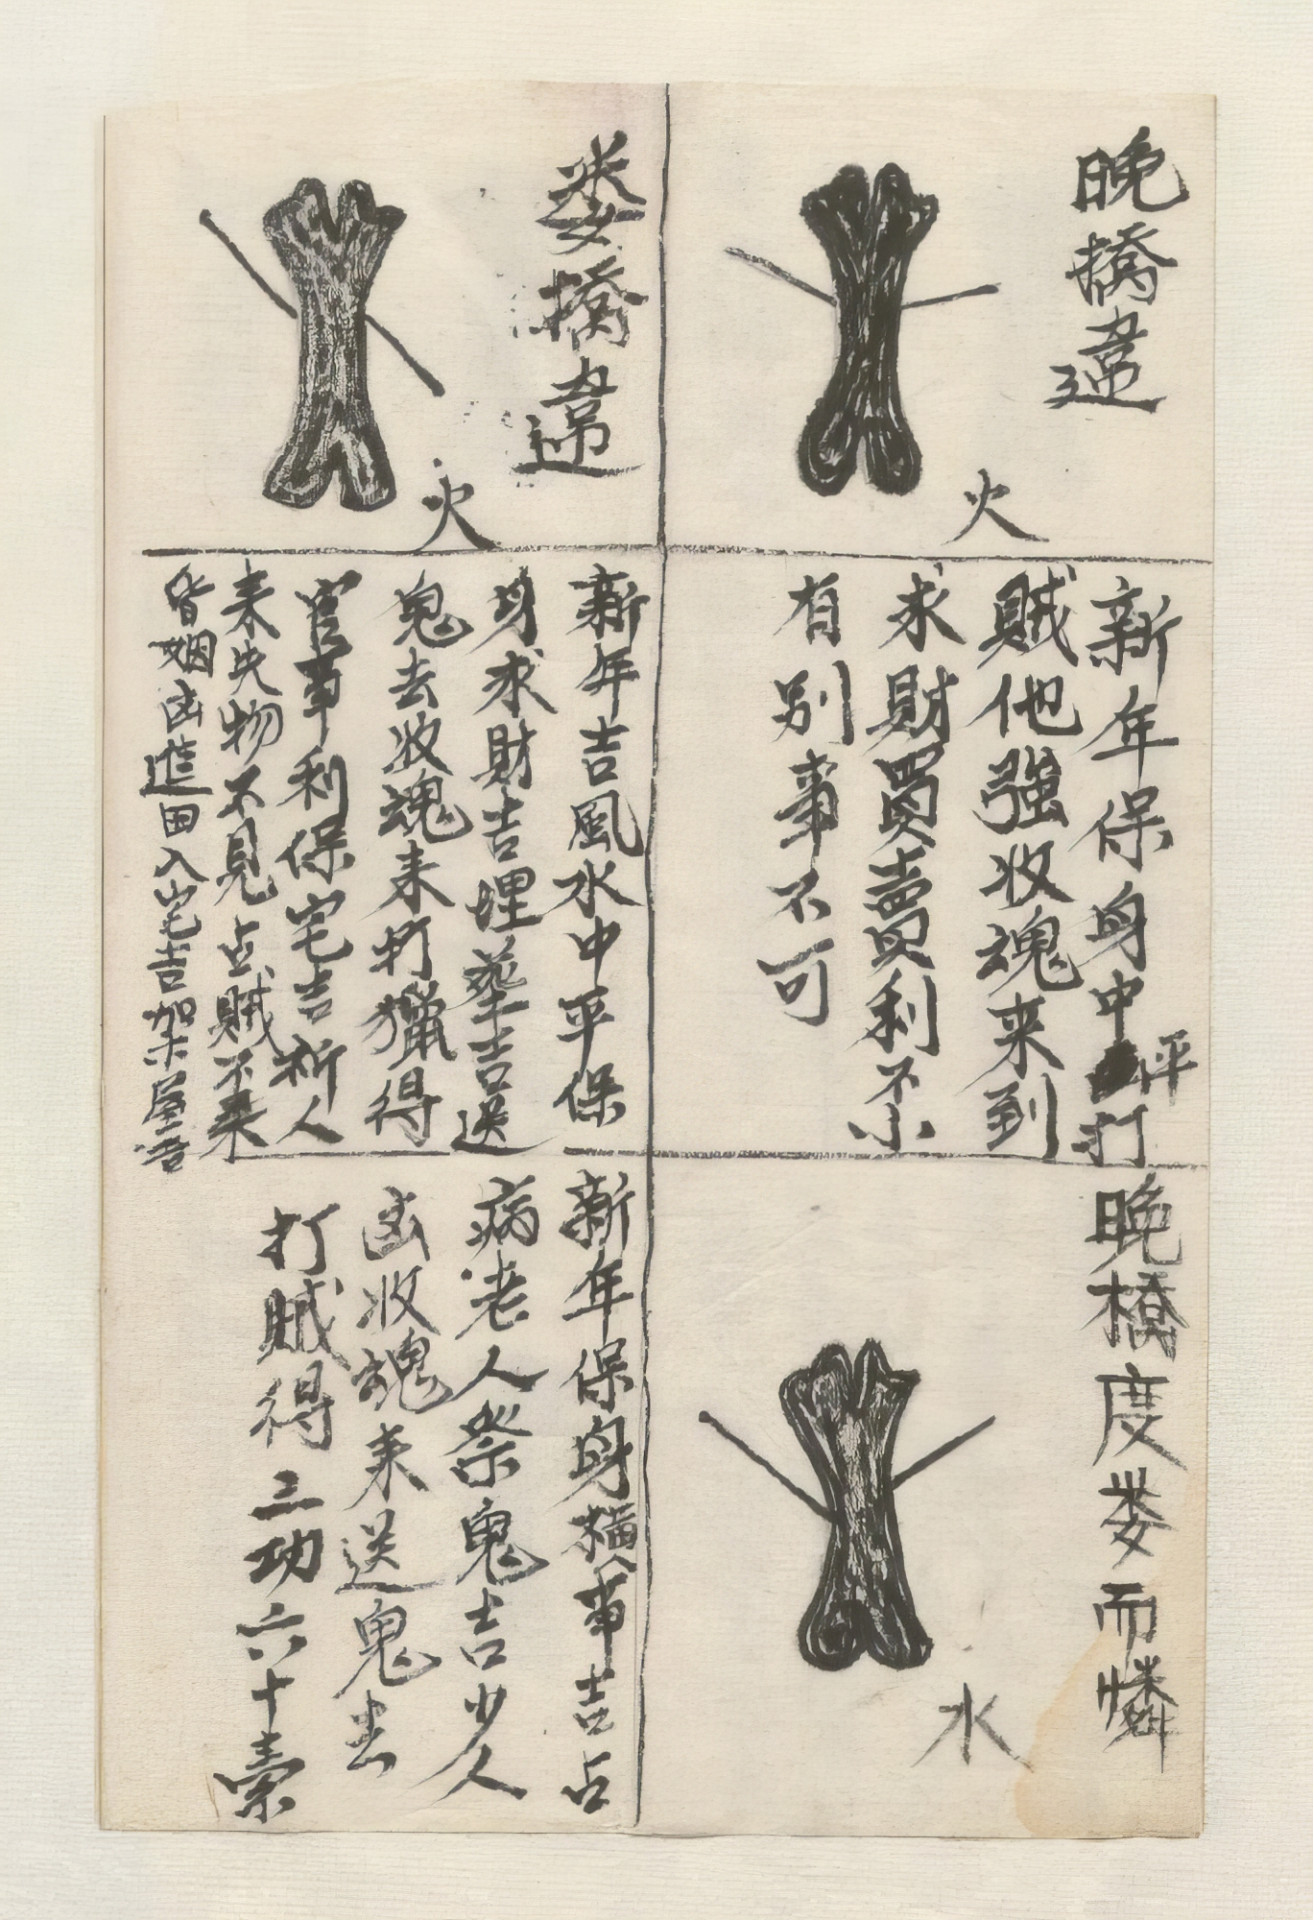 晚撟違
火
新年保身中平打
賊他強收魂来到
求財買賣利不小
有別事不可
晚橋度娄而憐
水
娄撟違
火
新年吉風水中平保
身求財吉埋葬吉送
鬼去收魂来打獵得
官事利保宅吉析人
来失物不見占賊不来
皆姻凶進田入宅吉架屋吾
新年保身橫事吉占
病老人祭鬼吉少人
凶收魂来送鬼去
打賊得三功六十索